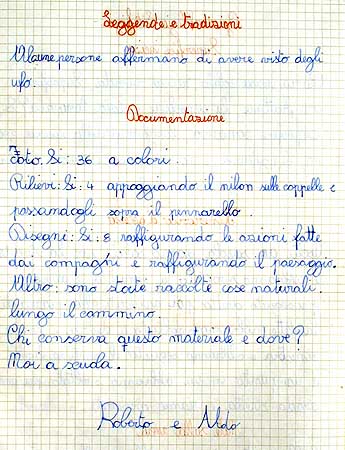 Leggende e tradizioni
Alcune persone affermano di avere visto degli
ufo.
Documentazione
Foto. Si: 36 a colori.
Rilievi: Si: 4 appoggiando il nilon sulle coppelle e
passandogli sopra il pennarello.
Disegni: Si: 8 raffigurando le azioni fatte
dai compagni e raffigurando il paesaggio.
Altro: sono state raccolte cose naturali
lungo il cammino.
Chi conserva questo materiale e dove?
Noi a scuola.
Roberto e Aldo